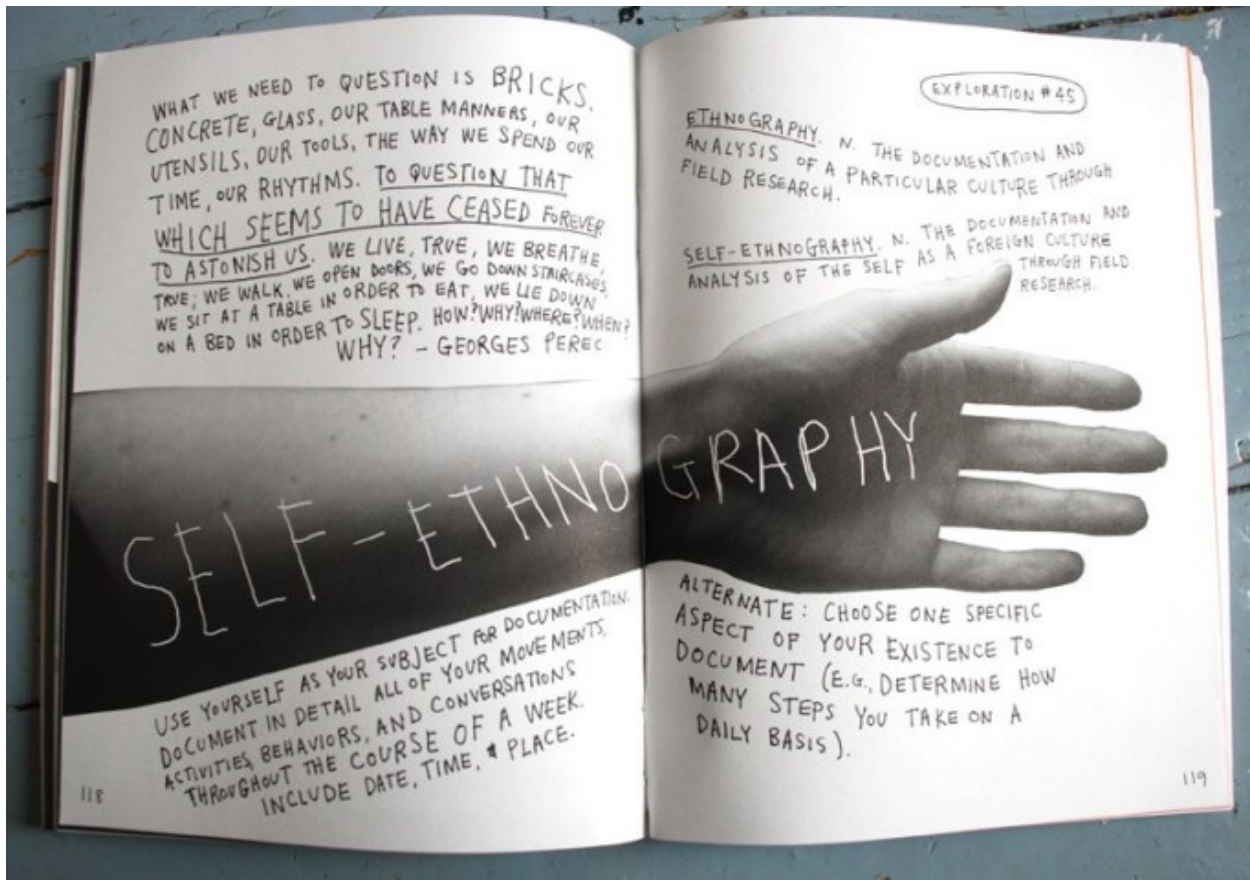 WHAT WE NEED TO QUESTION IS BRICKS.
CONCRETE, GLASS, OUR TABLE MANNERS, OUR
UTENSILS, OUR TOOLS, THE WAY WE SPEND OUR
TIME, OUR RHYTHMS. TO QUESTION THAT
WHICH SEEMS TO HAVE CEASED FOREVER
TO ASTONISH US. WE LIVE, TRUE, WE BREATHE,
TRUE; WE WALK, WE OPEN DOORS, WE GO DOWN STAIRCASES,
WE SIT AT A TABLE IN ORDER TO EAT, WE LIE DOWN
ON A BED IN ORDER TO SLEEP. HOW? WHY? WHERE? WHEN?
WHY? – GEORGES PEREC
SELF-ETHNOGRAPHY
USE YOURSELF AS YOUR SUBJECT FOR DOCUMENTATION.
DOCUMENT IN DETAIL ALL OF YOUR MOVEMENTS,
ACTIVITIES, BEHAVIORS, AND CONVERSATIONS
THROUGHOUT THE COURSE OF A WEEK.
INCLUDE DATE, TIME, & PLACE.
118
EXPLORATION #45
ETHNOGRAPHY. N. THE DOCUMENTATION AND
ANALYSIS OF A PARTICULAR CULTURE THROUGH
FIELD RESEARCH.
SELF-ETHNOGRAPHY. N. THE DOCUMENTATION AND
ANALYSIS OF THE SELF AS A FOREIGN CULTURE
THROUGH FIELD
RESEARCH.
ALTERNATE: CHOOSE ONE SPECIFIC
ASPECT OF YOUR EXISTENCE TO
DOCUMENT (E.G., DETERMINE HOW
MANY STEPS YOU TAKE ON A
DAILY BASIS).
119